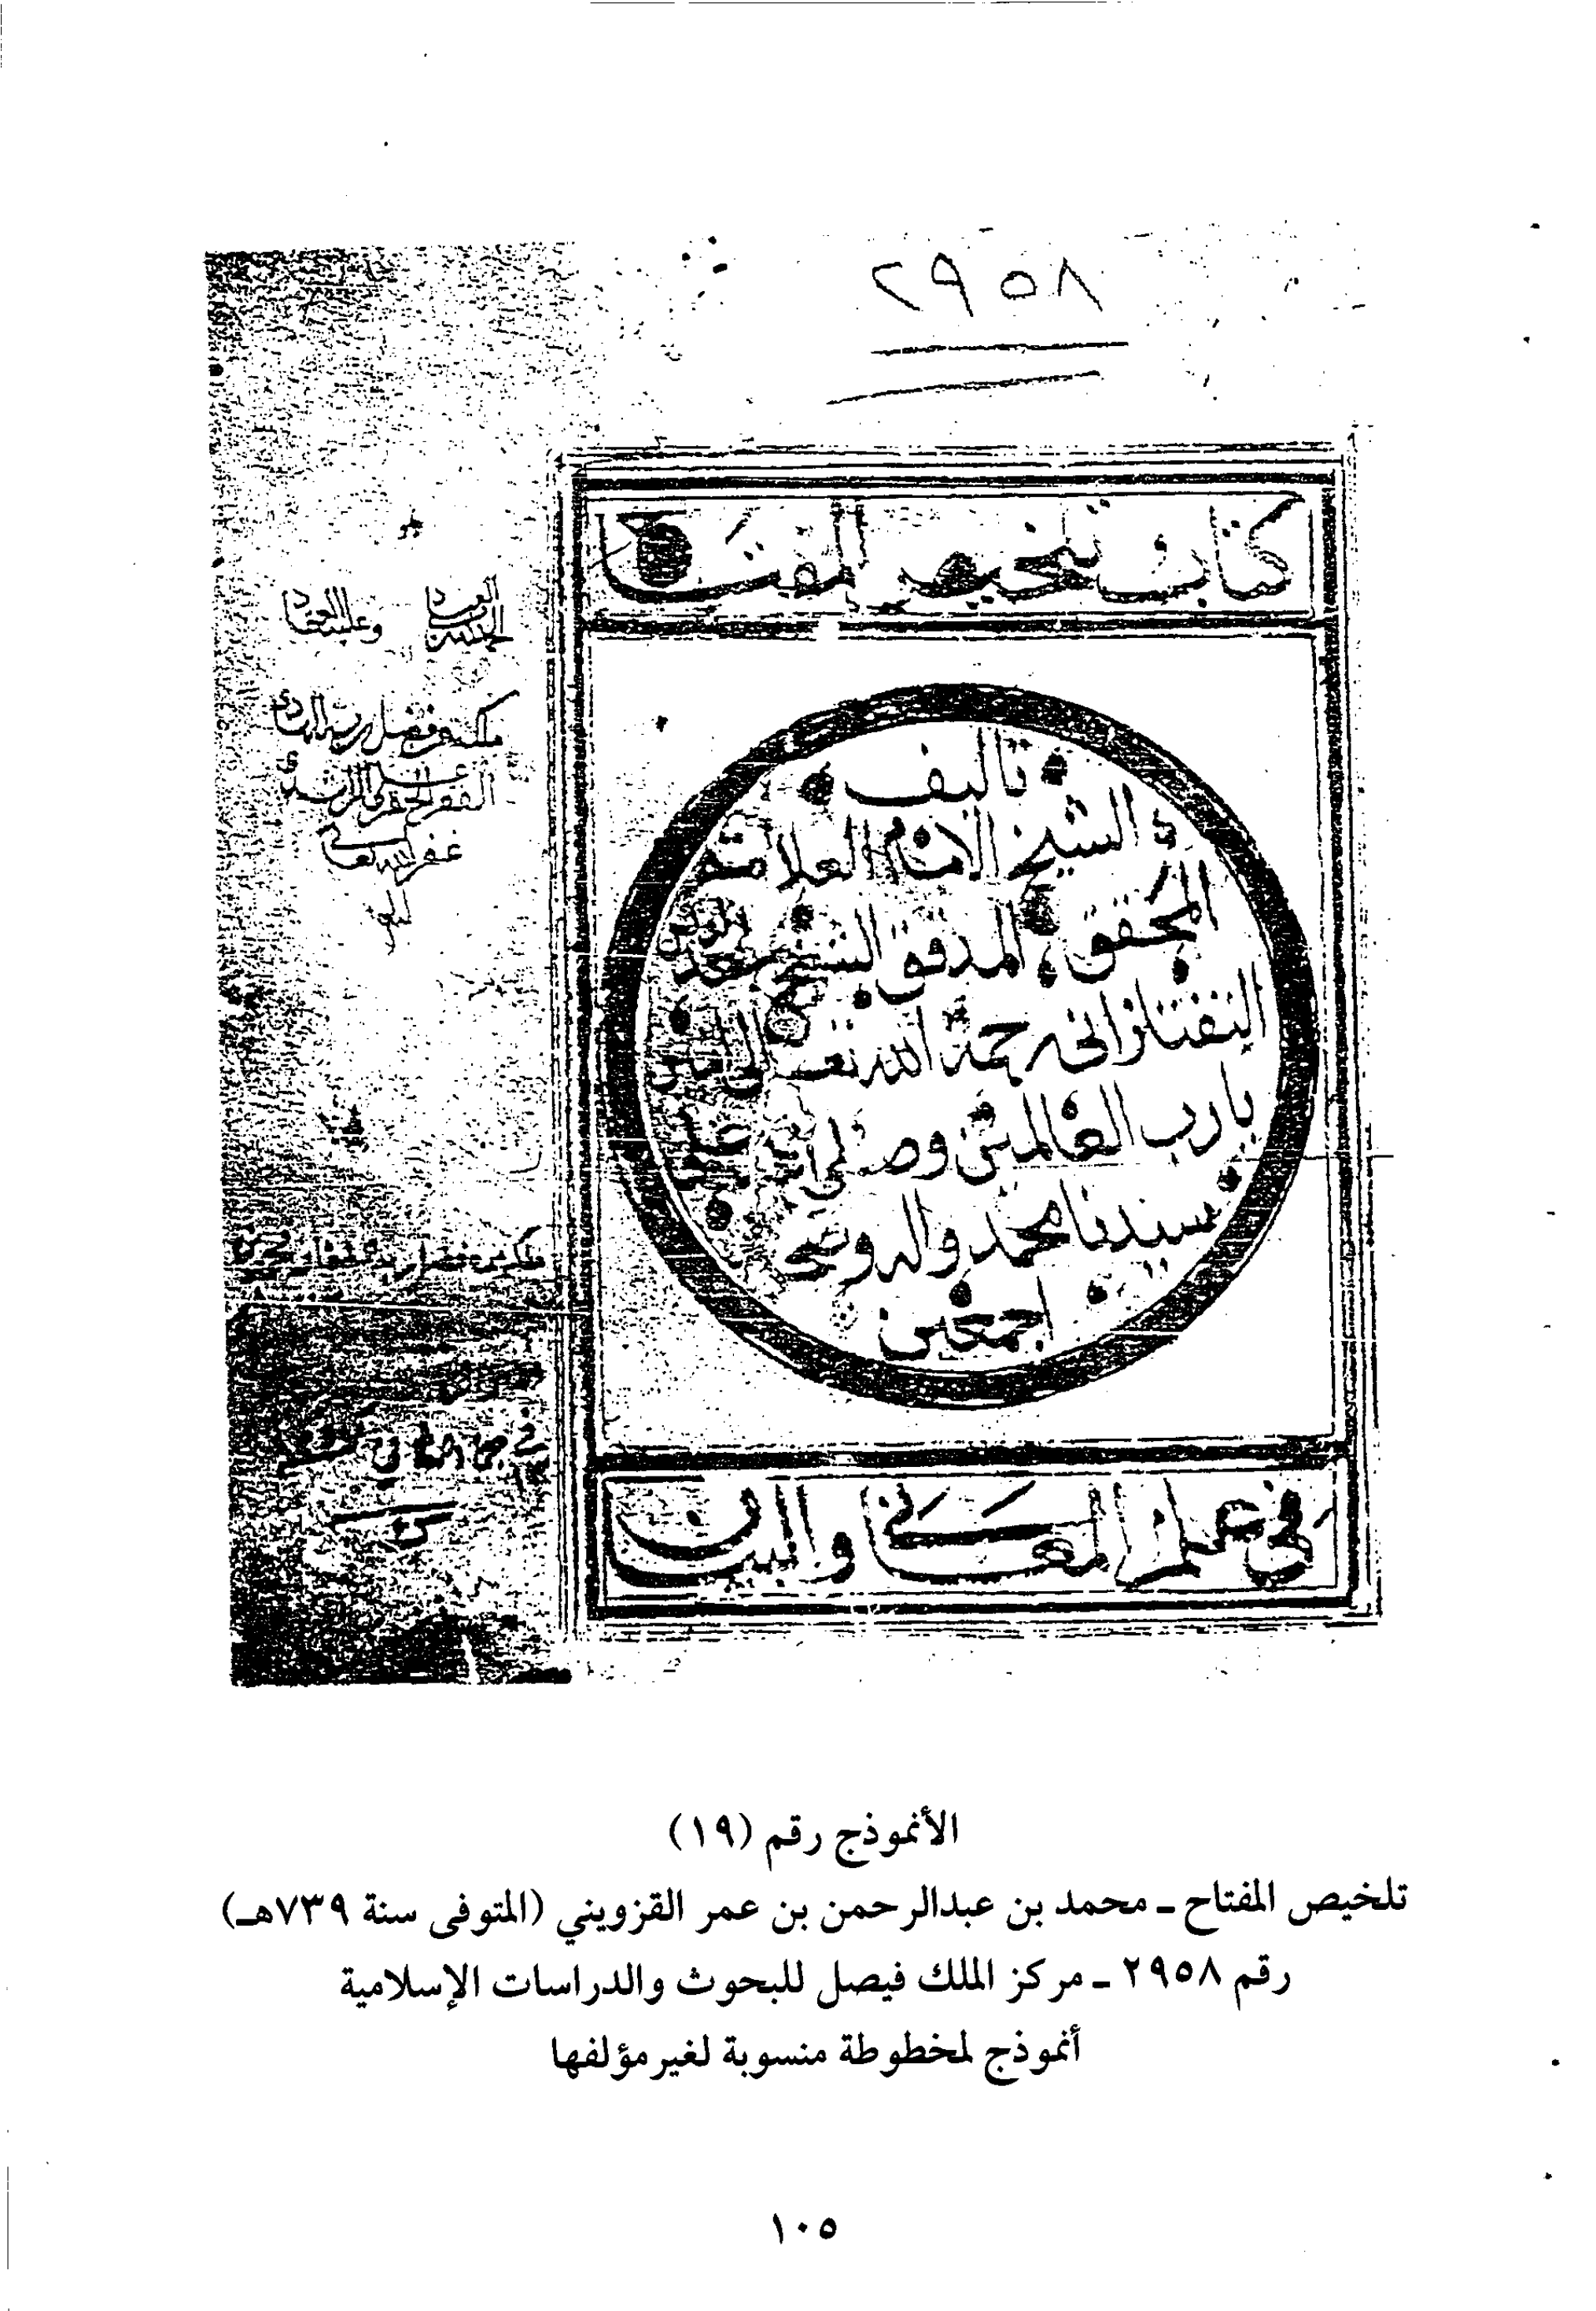 ٢٩٥٨
كتاب تلخيص المفتاح
تاليف
الشيخ الامام العلامة
المحقق المدقق الشيخ سعد الدين
التفتازاني رحمه الله تعالى امين
يارب العالمين وصلى الله على
سيدنا محمد واله وصحبه
اجمعين
في علم المعاني والبيان
وعليه اعتماد
من فضل ربه الهادي
الفقير
غفر الله تعالى
الأنموذج رقم (١٩)
تلخيص المفتاح ـ محمد بن عبدالرحمن بن عمر القزويني (المتوفى سنة ٧٣٩هـ)
رقم ٢٩٥٨ ـ مركز الملك فيصل للبحوث والدراسات الإسلامية
أنموذج لمخطوطة منسوبة لغير مؤلفها
١٠٥